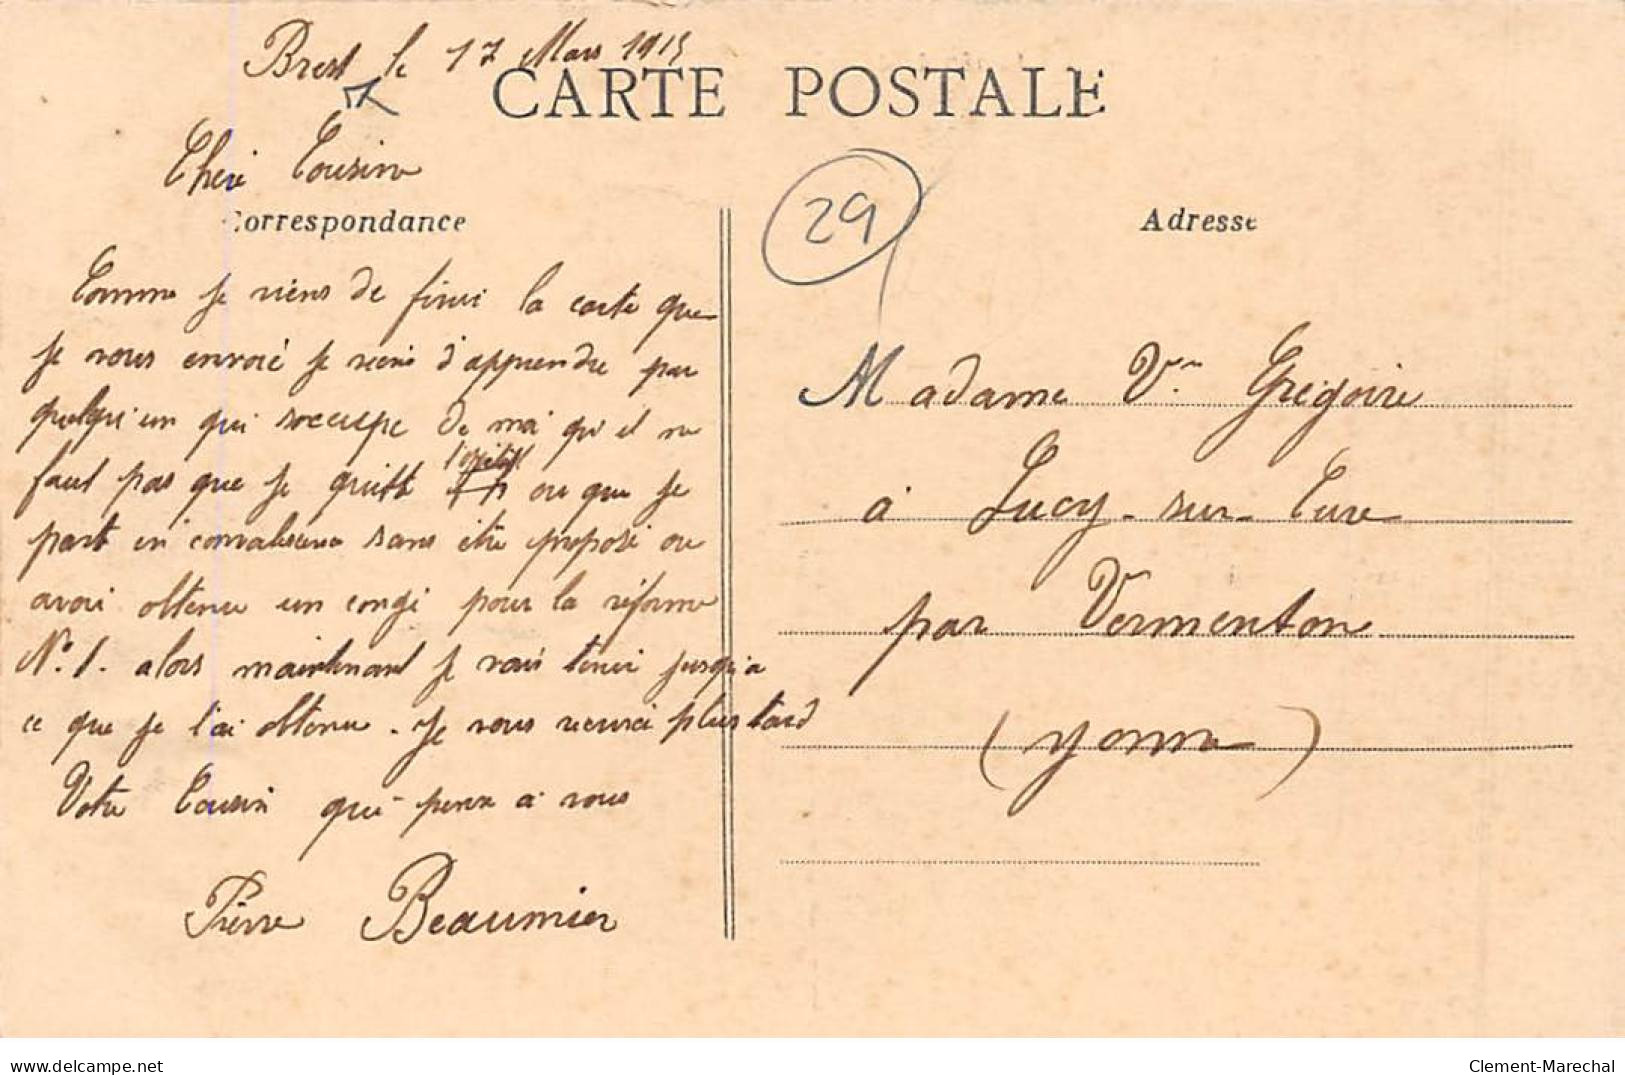 Brest le 17 Mars 1915
CARTE POSTALE
Chere Cousine
Correspondance
Comme je viens de finir la carte que
je vous envoié je viens d'apprendre par
quelqu'un qui soccuppe de moi qu'il ne
faut pas que je quitte l'opital ou que je
parte en convalesence sans etre proposé ou
avoir obtenu un congé pour la réforme
N° 1. alors maintenant je vais tenir jusqu'a
ce que je l'ai obtenu. Je vous recrirai plus tard
Votre Cousin qui pense a vous
Pierre Beaumier
29
Adresse
Madame Vve Grégoire
à Lucy-sur-Cure
par Vermenton
(Yonne)
delcampe.net
Clement-Marechal